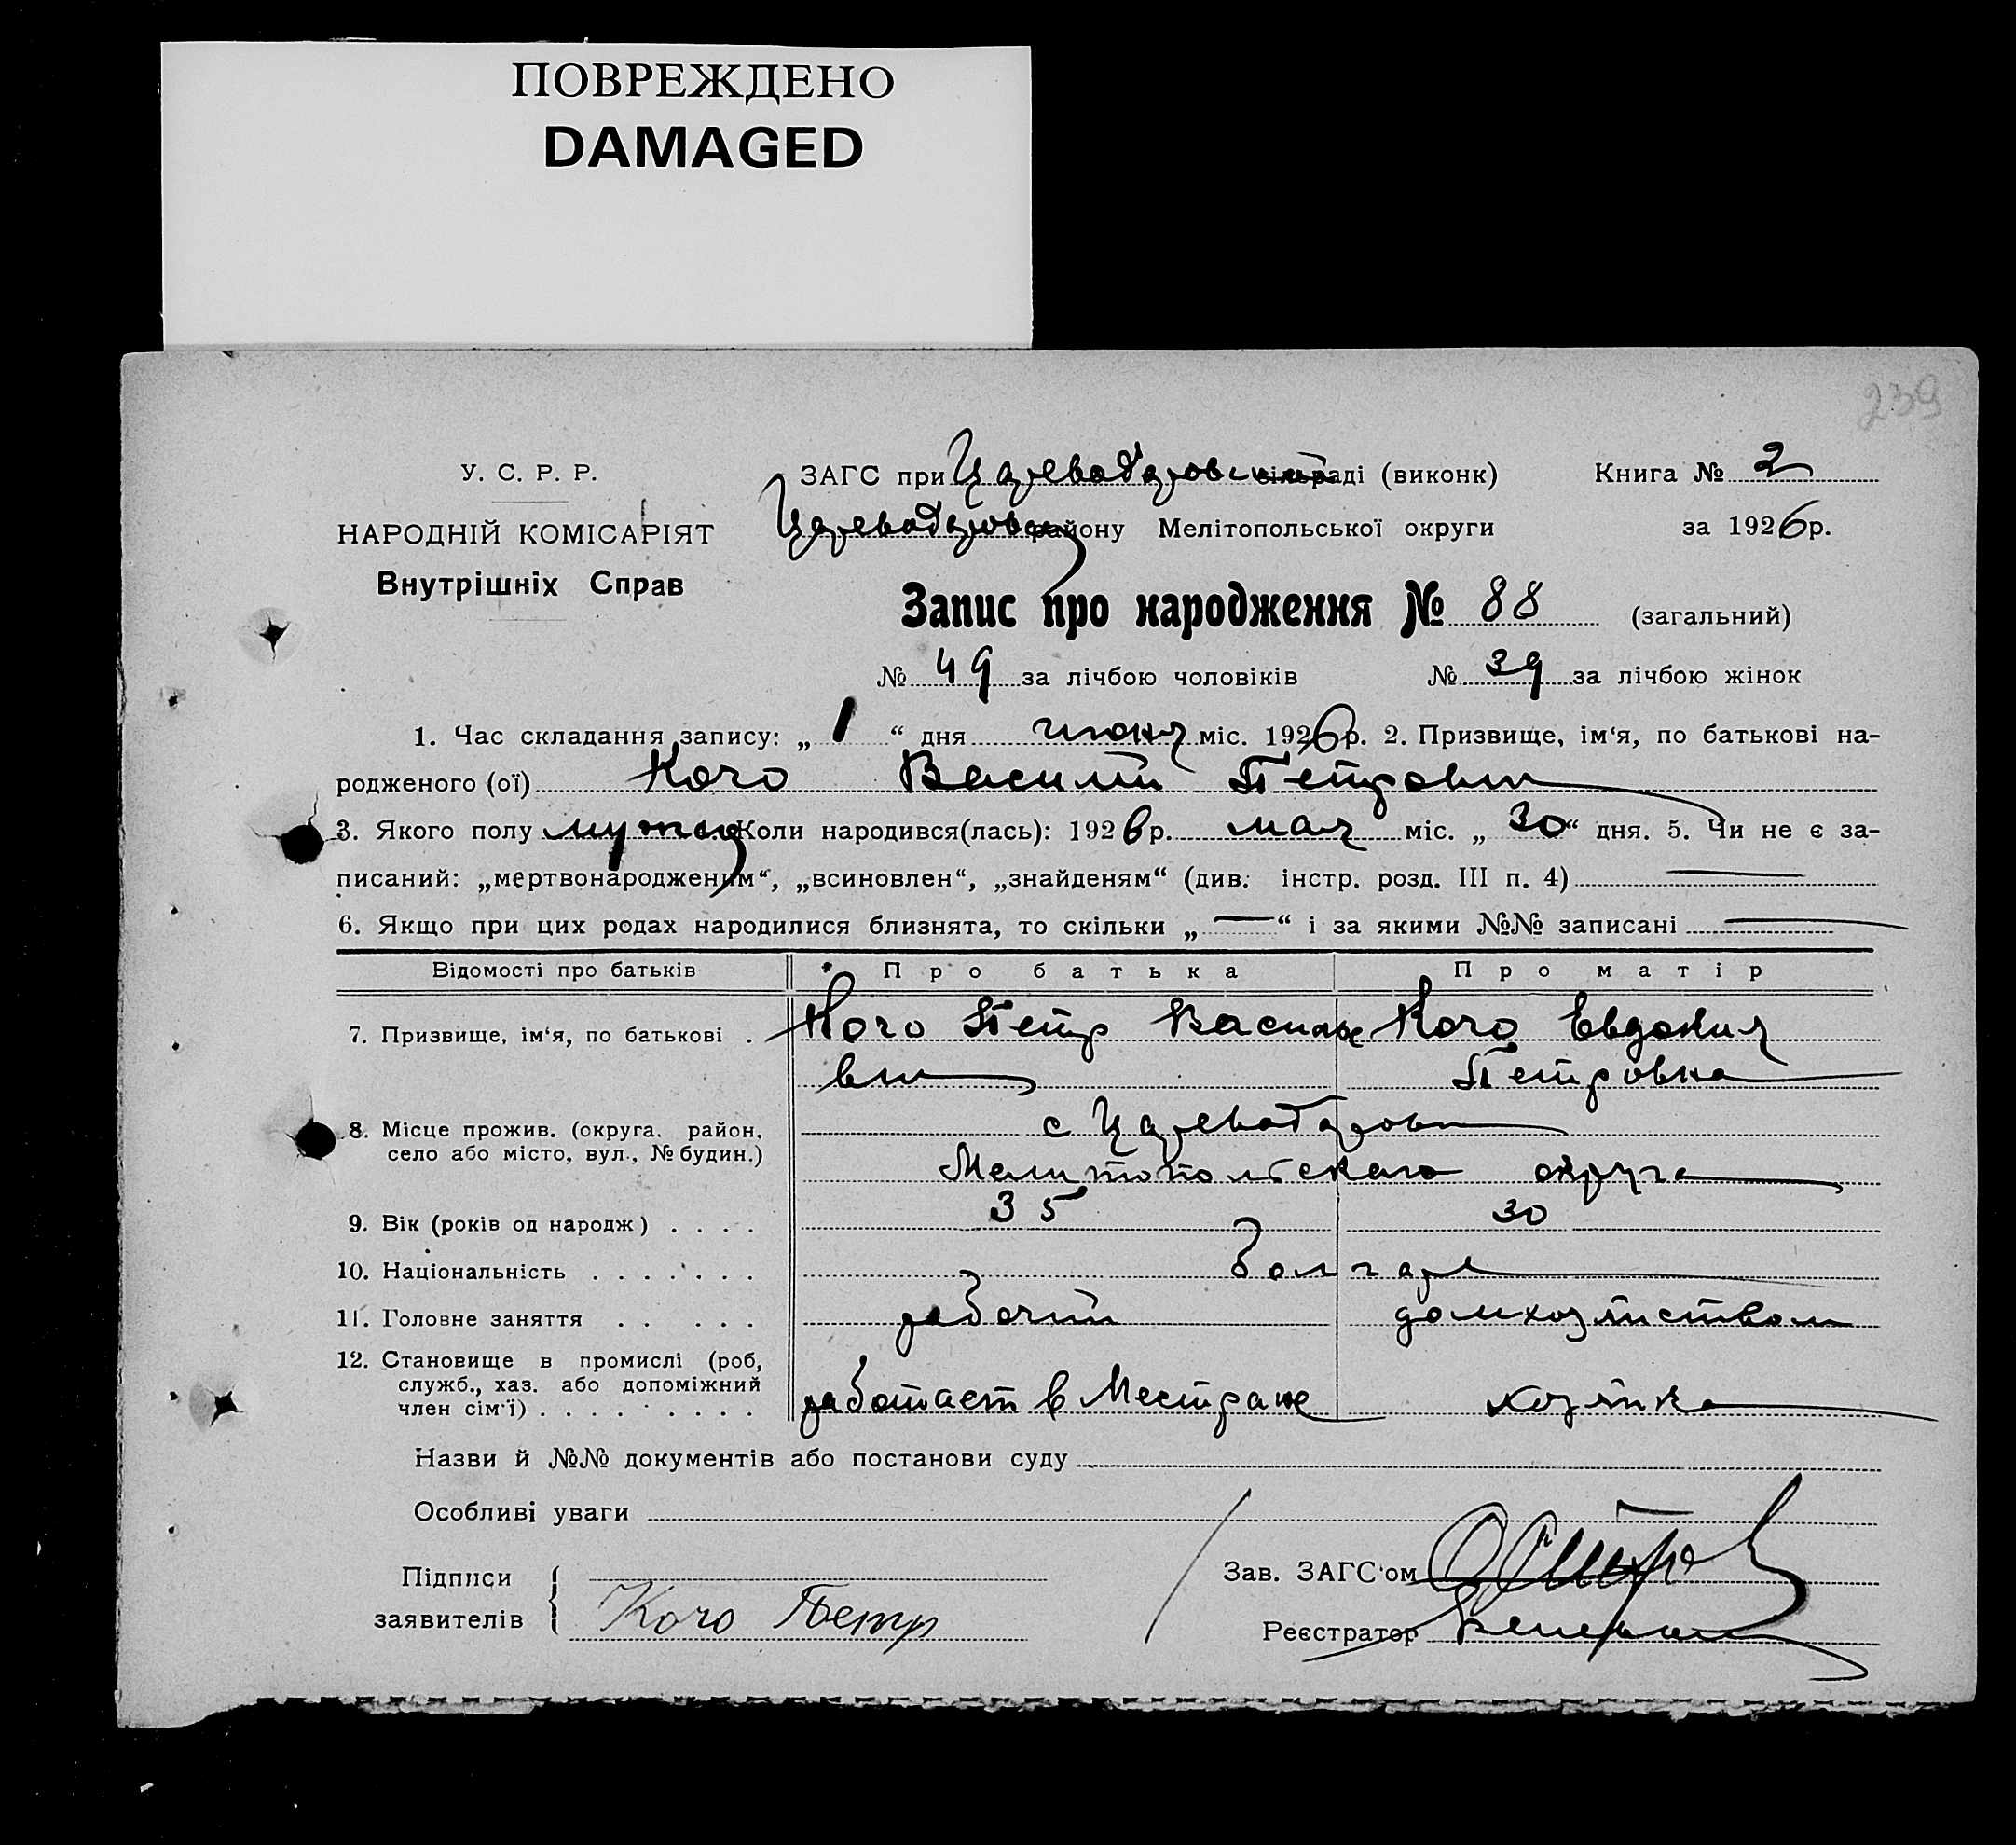 ПОВРЕЖДЕНО
DAMAGED
239
У. С. Р. Р.
НАРОДНІЙ КОМІСАРІЯТ
Внутрішніх Справ
ЗАГС при сільраді (виконк) Книга № 2
району Мелітопольської округи за 1926 р.
Запис про народження № 88 (загальний)
№ 49 за лічбою чоловіків № 39 за лічбою жінок
1. Час складання запису: „ 1 “ дня июня міс. 1926 р. 2. Призвище, ім‘я, по батькові на-
родженого (ої) Кочо Василий Петрович
3. Якого полу мужск Коли народився(лась): 1926 р. мая міс. „ 30 “ дня. 5. Чи не є за-
писаний: „мертвонародженим“, „всиновлен“, „знайденям“ (див. інстр. розд. III п. 4)
6. Якщо при цих родах народилися близнята, то скільки „ — “ і за якими №№ записані —
Відомості про батьків Про батька Про матір
7. Призвище, ім‘я, по батькові . Кочо Петр Василье Кочо Евдокия
вич Петровна
8. Місце прожив. (округа. район, село або місто, вул., № будин.) с
Мелитопольского округа
9. Вік (років од народж) . . . . 35 30
10. Національність . . . . . . . болгаре
11. Головне заняття . . . . . рабочий домхозяйством
12. Становище в промислі (роб,
служб., хаз. або допоміжний
член сім‘ї) . . . . . . . . . работает в хозяйка
Назви й №№ документів або постанови суду
Особливі уваги
Підписи
заявителів Кочо Петр
Зав. ЗАГС‘ом
Реєстратор